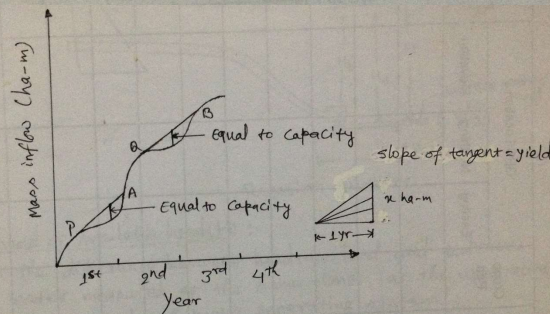 Mass inflow (ha-m)
B
Q
Equal to Capacity
slope of tangent = yield
A
P
Equal to Capacity
x ha-m
1yr
1st 2nd 3rd 4th
Year